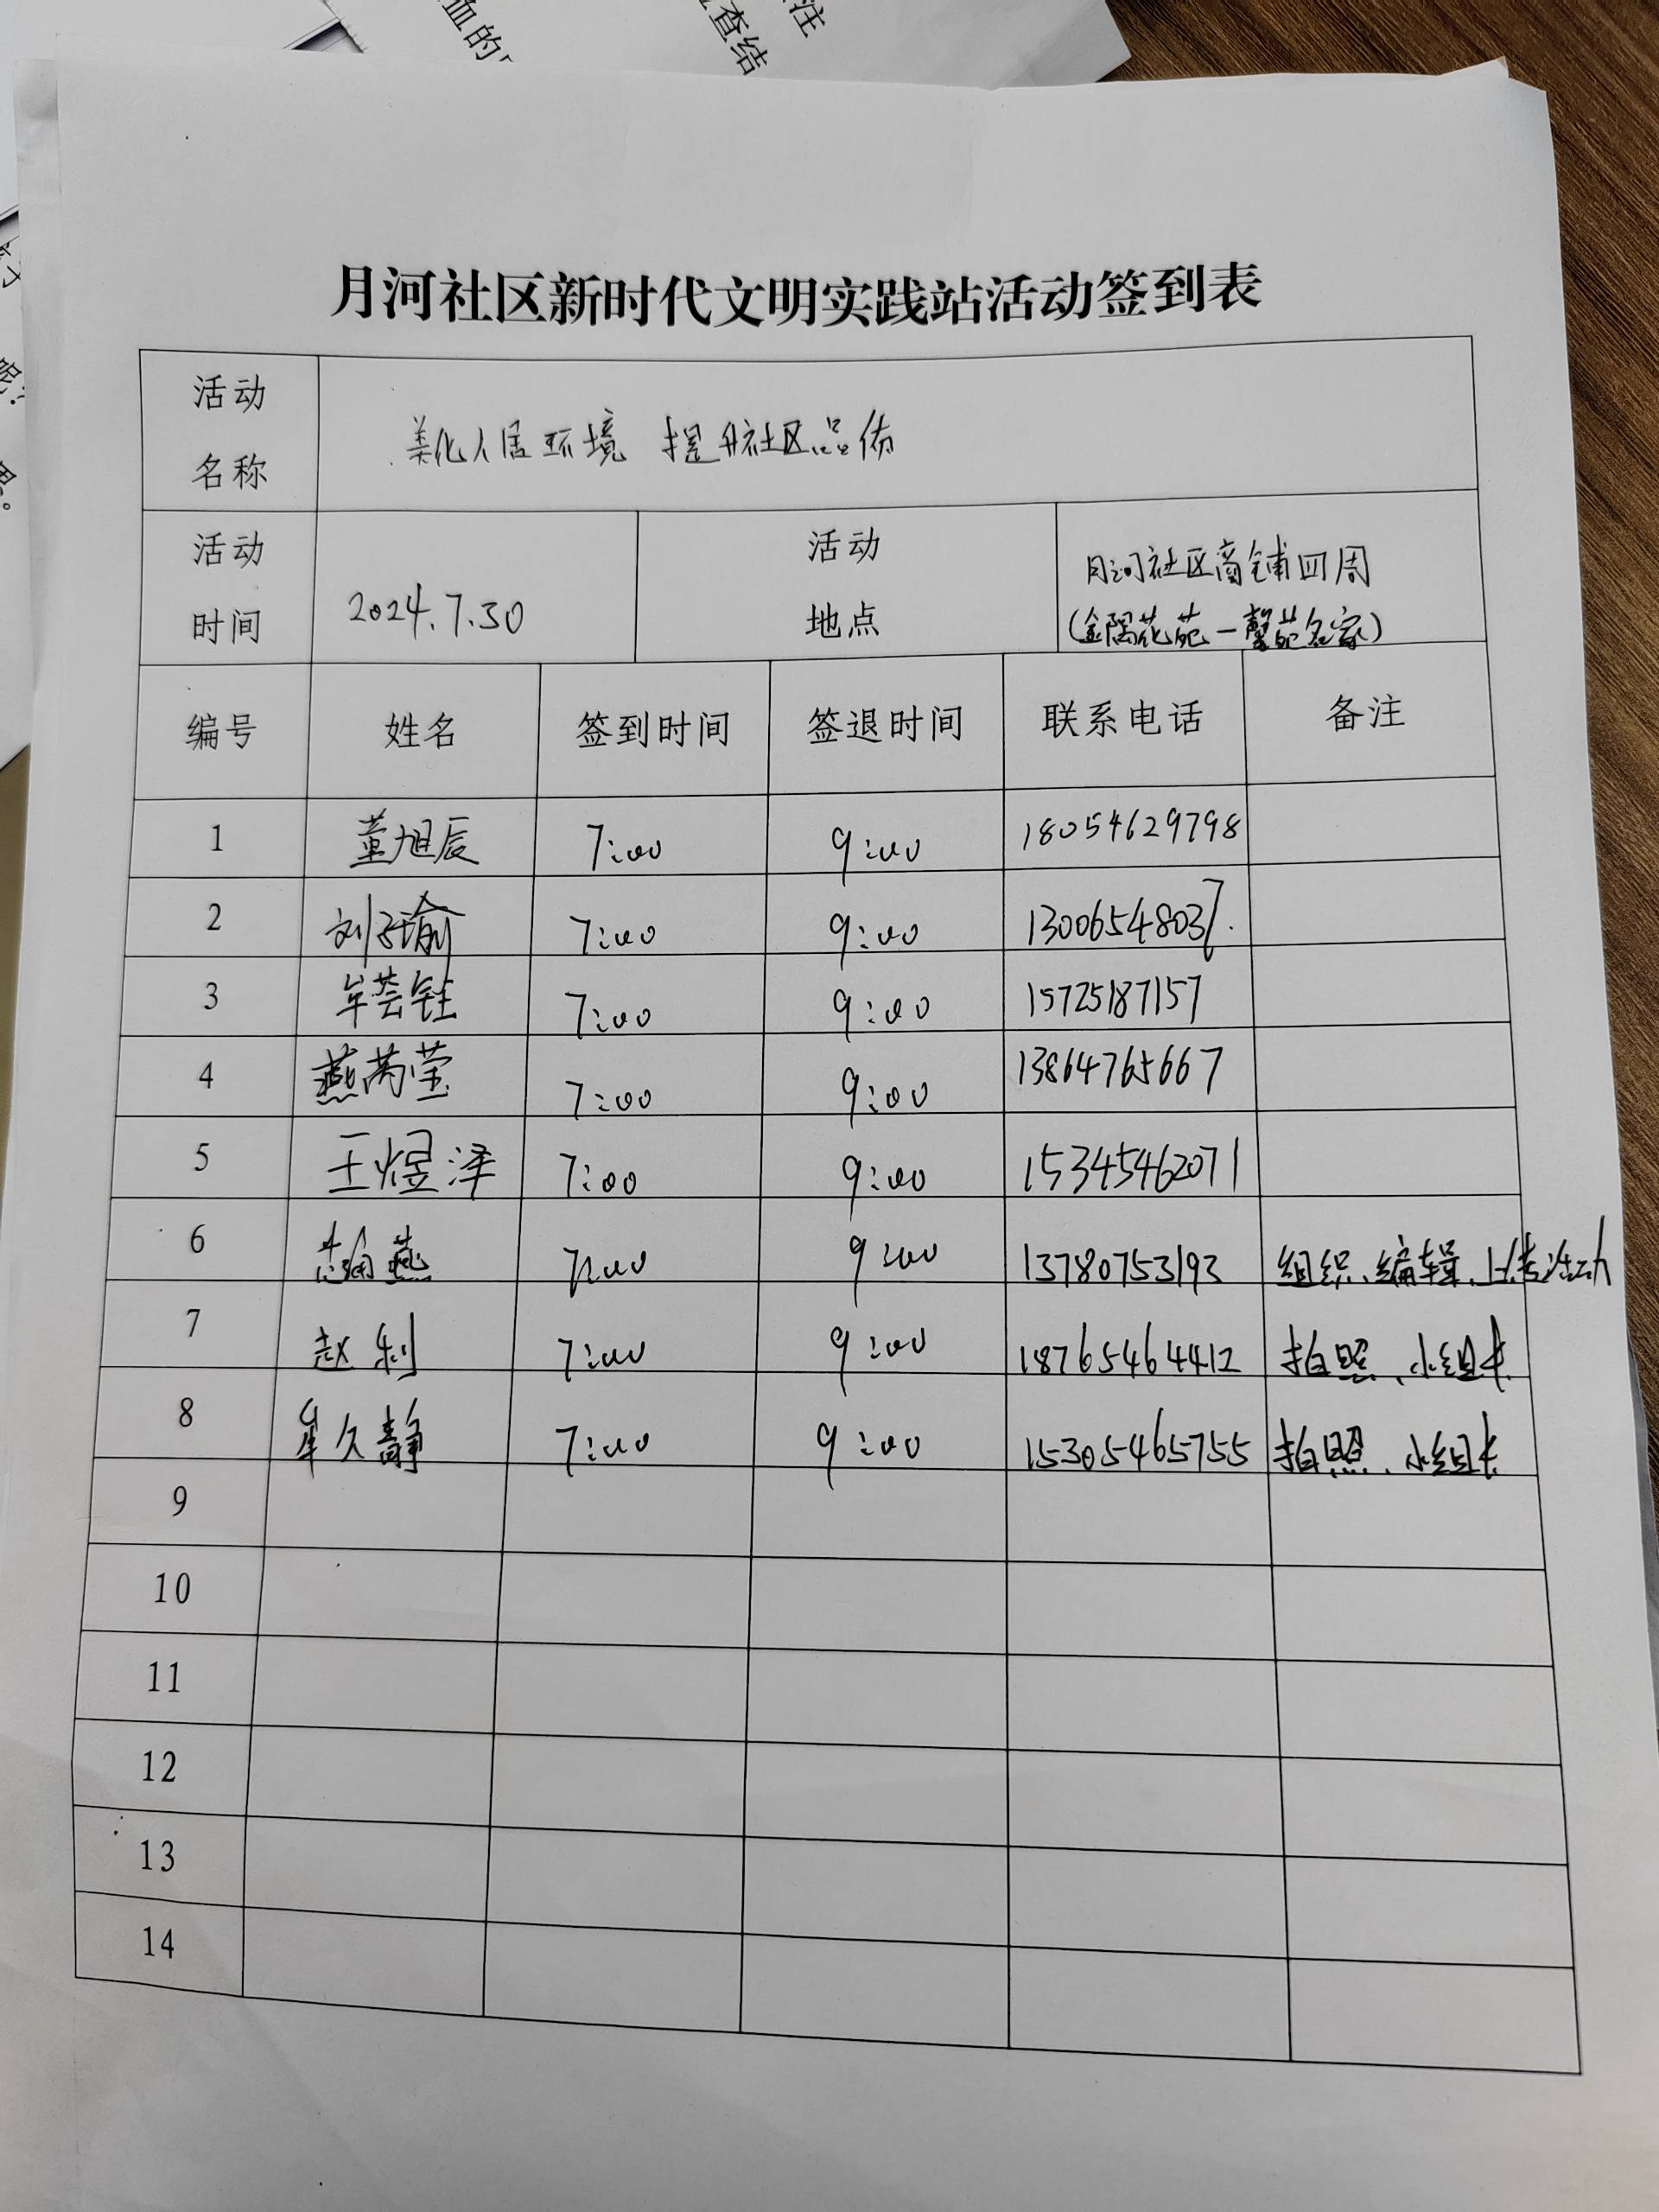 血的
查结
注
月河社区新时代文明实践站活动签到表
活动名称 美化人居环境 提升社区品质
活动时间 2024.7.30 活动地点 月河社区商铺四周
(金隅花苑—馨苑名家)
编号 姓名 签到时间 签退时间 联系电话 备注
1 董旭辰 7:00 9:00 18054629798
2 刘子瑜 7:00 9:00 13006548037
3 牟芸铨 7:00 9:00 15725187157
4 燕芮莹 7:00 9:00 13864765667
5 王煜泽 7:00 9:00 15345462071
6 燕 7:00 9:00 13780753193 组织、编辑、上传活动
7 赵利 7:00 9:00 18765464412 拍照、小组长
8 牟久静 7:00 9:00 15305465755 拍照、小组长
9
10
11
12
13
14